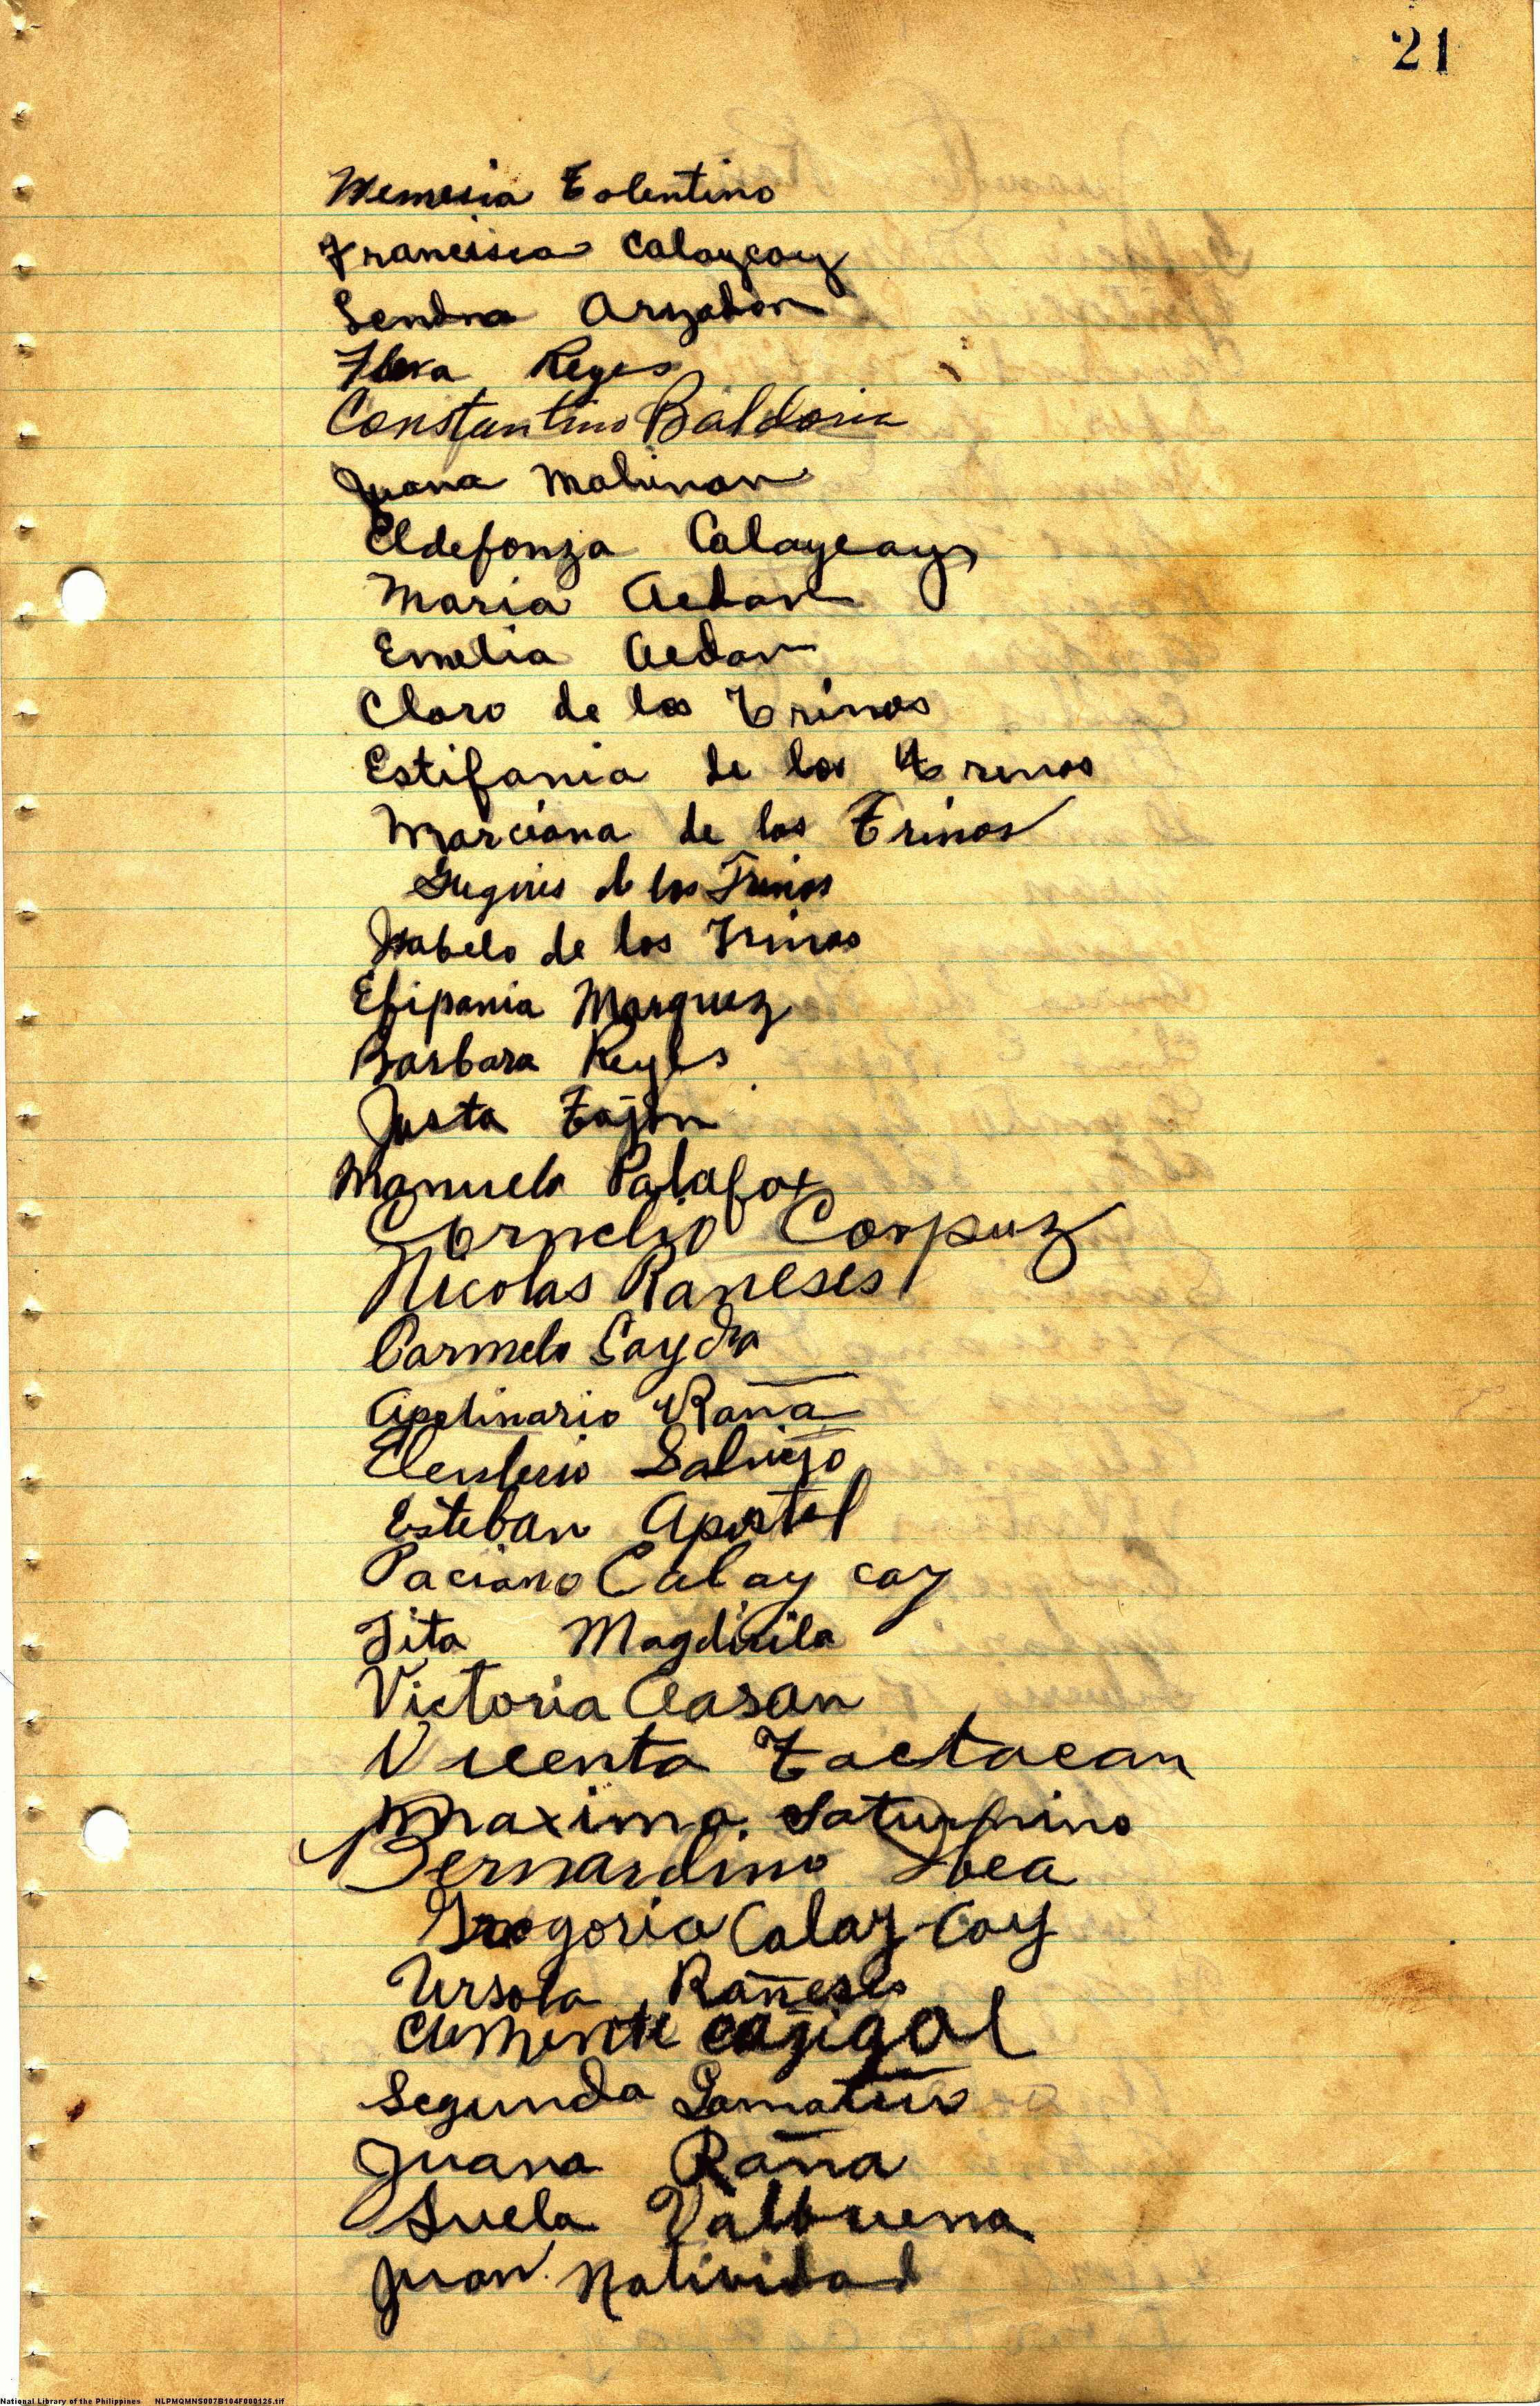 21
Nemesia Tolentino
Francisca Calaycay
Sendna Aryabon
Flora Reyes
Constantino Baldoria
Juana Malinan
Eldefonza Calaycay
Maria Aedan
Emelia Aedan
Claro de los Trinos
Estifania de los Trinos
Marciana de los Trinos
de los Trinos
Isabelo de los Trinos
Efipania Marquez
Barbara Reyes
Justa Tajon
Manuela Palafox
Cornelio Corpuz
Nicolas Raneses
Carmelo Saydra
Apolinario Raña
Eleuterio
Esteban Apostol
Paciano Calay cay
Tita Magdirila
Victoria Aasan
Vicenta Tactacan
Maxima Saturnino
Bernardino Ibea
Gregoria Calay-Cay
Ursola Rañeses
Clemente cajigal
Segunda
Juana Raña
Suela Valbuena
Juan Natividad
National Library of the Philippines NLPMQMNS007B104F000125.tif